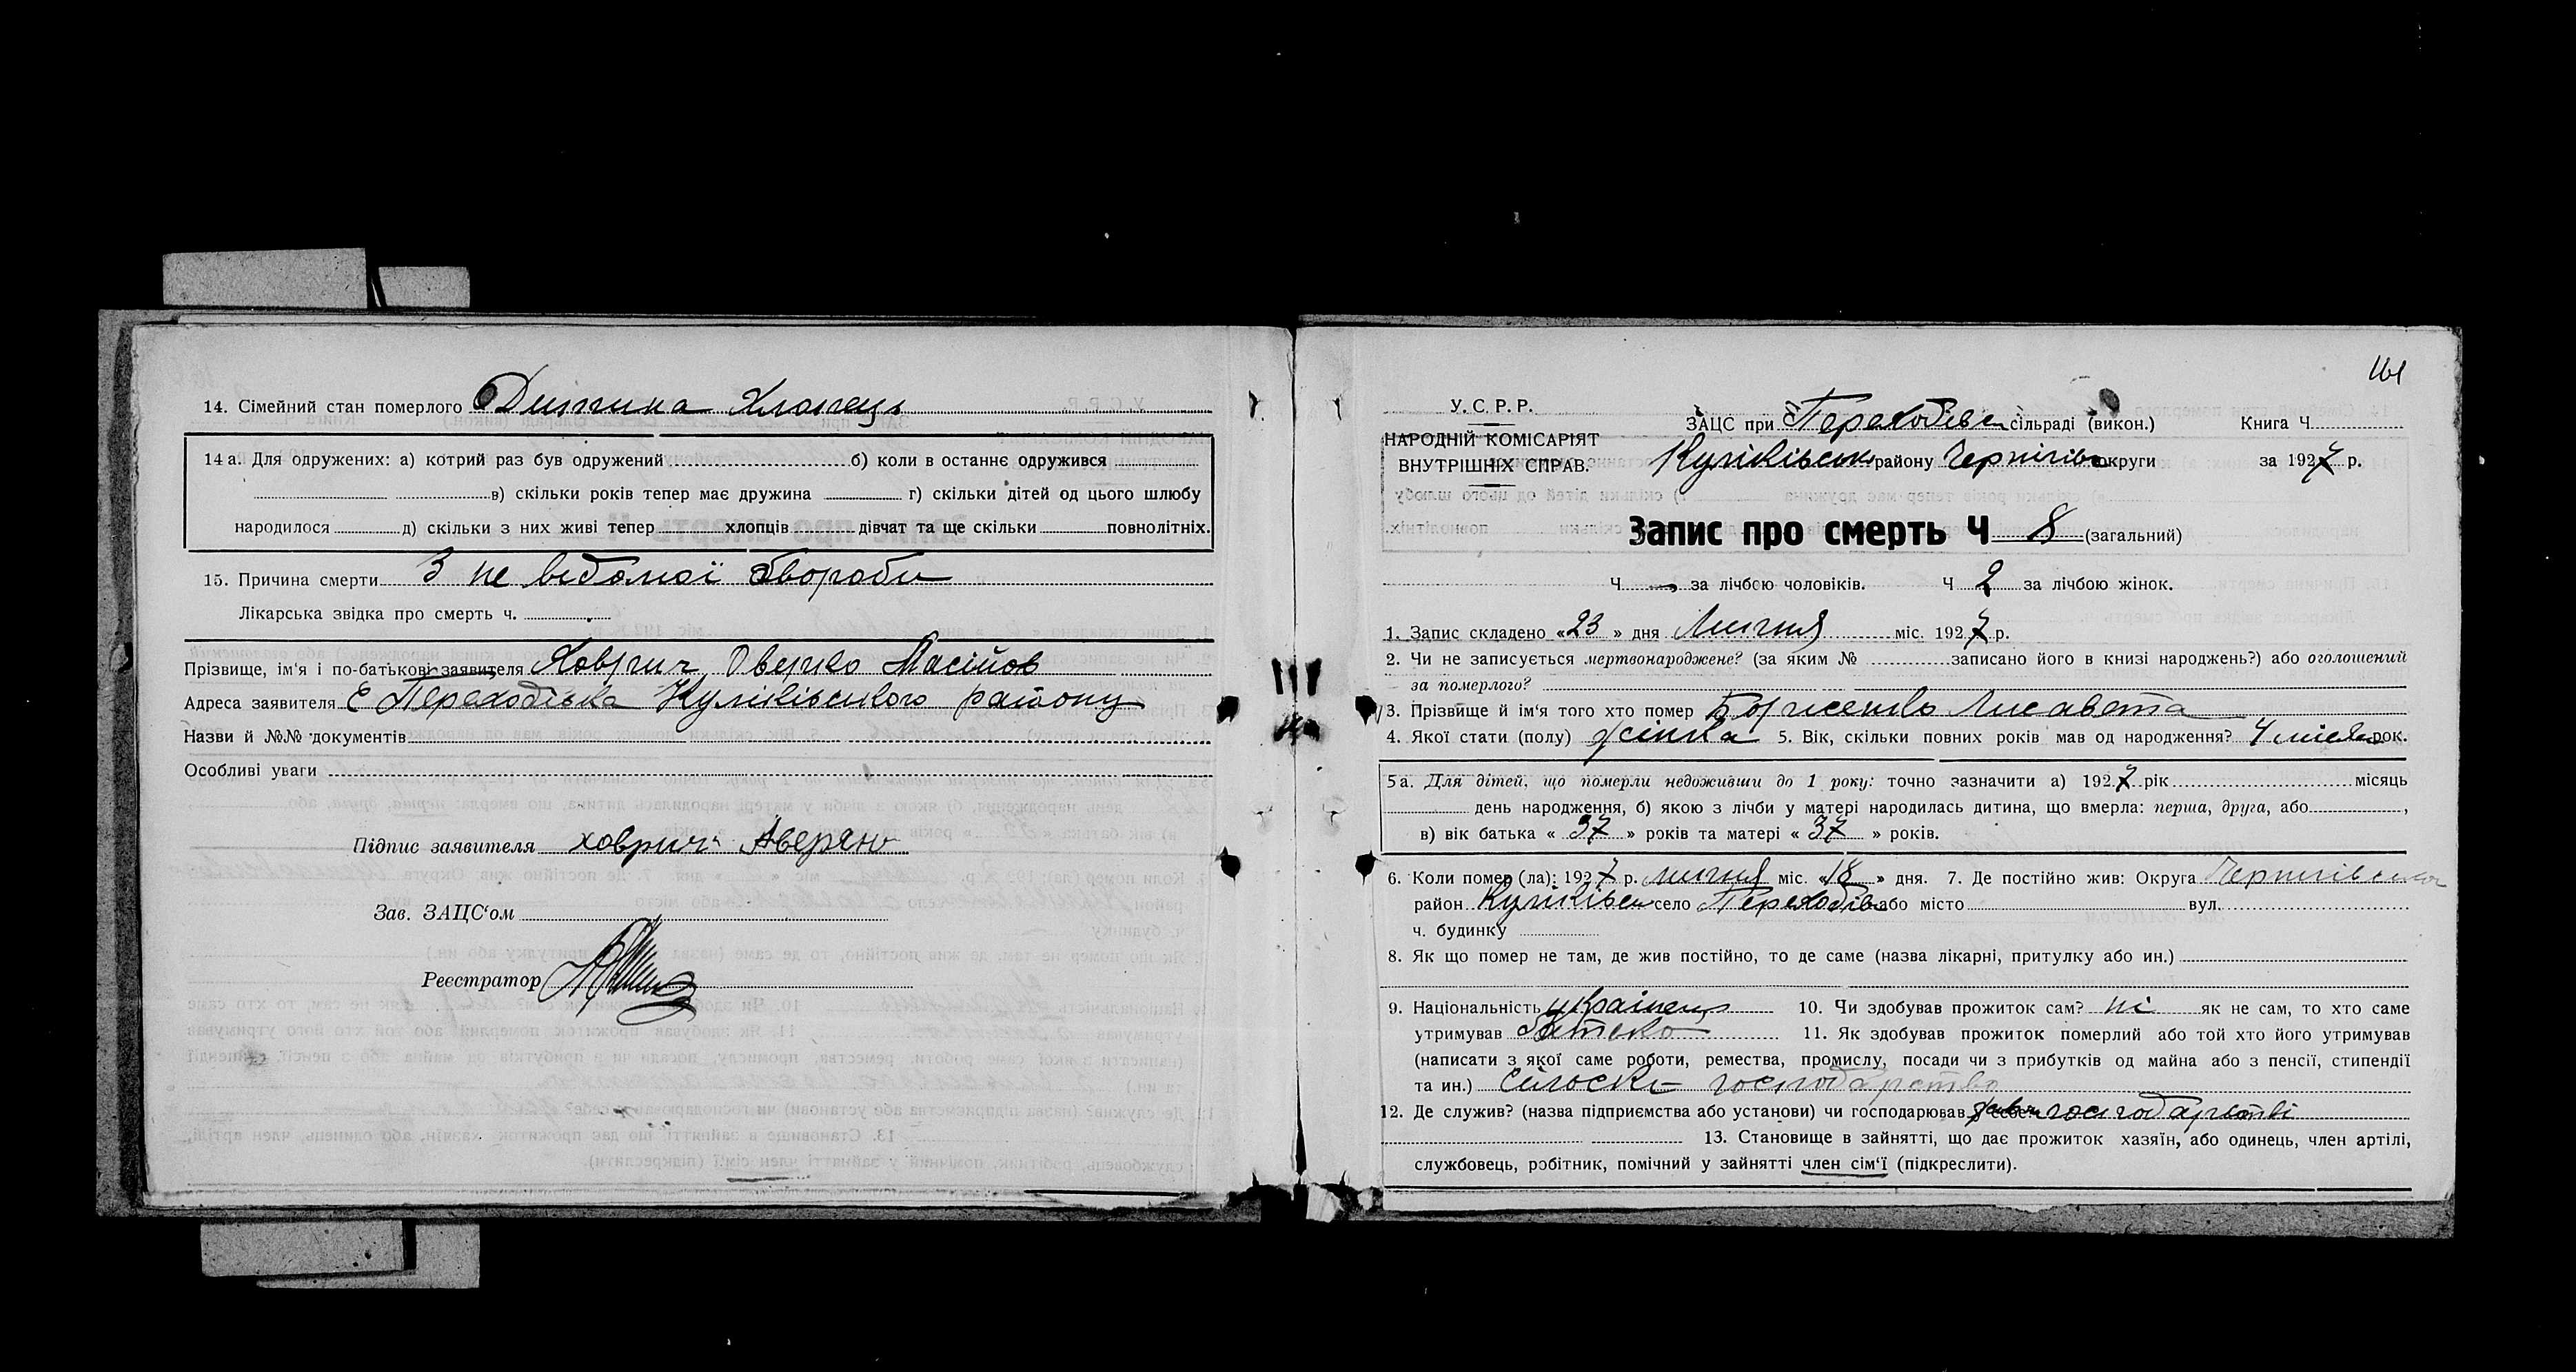 14. Сімейний стан померлого Дитина Хлопець
14 а. Для одружених: а) котрий раз був одружений б) коли в останнє одружився
в) скільки років тепер має дружина г) скільки дітей од цього шлюбу
народилося д) скільки з них живі тепер хлопців дівчат та ще скільки повнолітніх.
15. Причина смерти З не відомої
Лікарська звідка про смерть ч.
Прізвище, ім'я і по-батькові заявителя Ховрич Оверко
Адреса заявителя с Переходівка Куликівського району
Назви й №№ документів
Особливі уваги
Підпис заявителя ховрич
Зав. ЗАЦС'ом
Реєстратор
161
У. С. Р. Р.
НАРОДНІЙ КОМІСАРІЯТ
ВНУТРІШНІХ СПРАВ.
ЗАЦС при Переходівск сільраді (викон.) Книга Ч
Куликівськ району Чернігівс округи за 1927 р.
Запис про смерть Ч 8 (загальний)
Ч — за лічбою чоловіків. Ч 2 за лічбою жінок.
1. Запис складено «23» дня Липня міс. 1927 р.
2. Чи не записується мертвонароджене? (за яким № записано його в книзі народжень?) або оголошений
за померлого?
3. Прізвище й ім'я того хто помер Борисенко Лисавета
4. Якої стати (полу) жінка 5. Вік, скільки повних років мав од народження? 4 рок.
5 а. Для дітей, що померли недоживши до 1 року: точно зазначити а) 1927 рік місяць
день народження, б) якою з лічби у матері народилась дитина, що вмерла: перша, друга, або ,
в) вік батька «37» років та матері «37» років.
6. Коли помер (ла): 1927 р. липня міс. «18» дня. 7. Де постійно жив: Округа Чернігівська
район Куликівск село Переходівк або місто вул.
ч. будинку
8. Як що помер не там, де жив постійно, то де саме (назва лікарні, притулку або ин.)
9. Національність українец 10. Чи здобував прожиток сам? ні як не сам, то хто саме
утримував батько 11. Як здобував прожиток померлий або той хто його утримував
(написати з якої саме роботи, ремества, промислу, посади чи з прибутків од майна або з пенсії, стипендії
та ин.) сільске господарство
12. Де служив? (назва підприємства або установи) чи господарював господарстві
13. Становище в зайнятті, що дає прожиток хазяїн, або одинець, член артілі,
службовець, робітник, помічний у зайнятті член сім'ї (підкреслити).